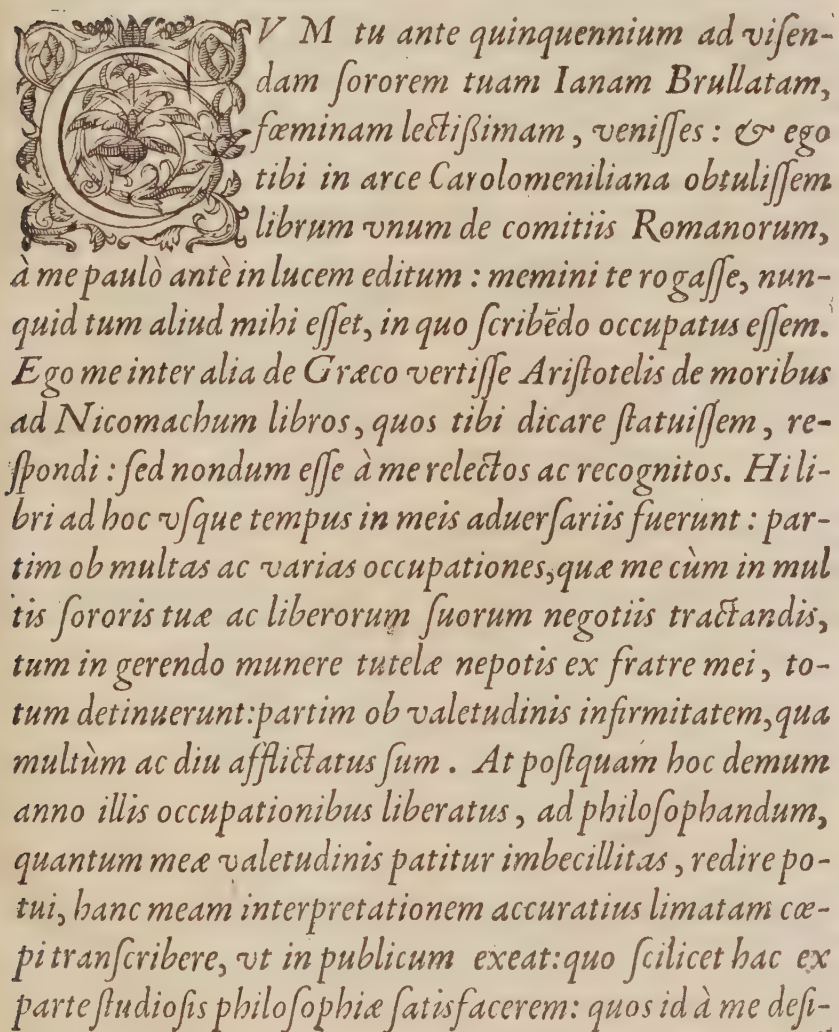 CVM tu ante quinquennium ad viſen-
dam ſororem tuam Ianam Brullatam,
fœminam lectiſsimam, veniſſes: & ego
tibi in arce Carolomeniliana obtuliſſem
librum vnum de comitiis Romanorum,
à me paulò antè in lucem editum: memini te rogaſſe, nun-
quid tum aliud mihi eſſet, in quo ſcribēdo occupatus eſſem.
Ego me inter alia de Græco vertiſſe Ariſtotelis de moribus
ad Nicomachum libros, quos tibi dicare ſtatuiſſem, re-
ſpondi: ſed nondum eſſe à me relectos ac recognitos. Hi li-
bri ad hoc vſque tempus in meis aduerſariis fuerunt: par-
tim ob multas ac varias occupationes, quæ me cùm in mul
tis ſororis tuæ ac liberorum ſuorum negotiis tractandis,
tum in gerendo munere tutelæ nepotis ex fratre mei, to-
tum detinuerunt: partim ob valetudinis infirmitatem, qua
multùm ac diu afflictatus ſum. At poſtquam hoc demum
anno illis occupationibus liberatus, ad philoſophandum,
quantum meæ valetudinis patitur imbecillitas, redire po-
tui, hanc meam interpretationem accuratius limatam cœ-
pi tranſcribere, vt in publicum exeat: quo ſcilicet hac ex
parte ſtudioſis philoſophiæ ſatisfacerem: quos id à me deſi-